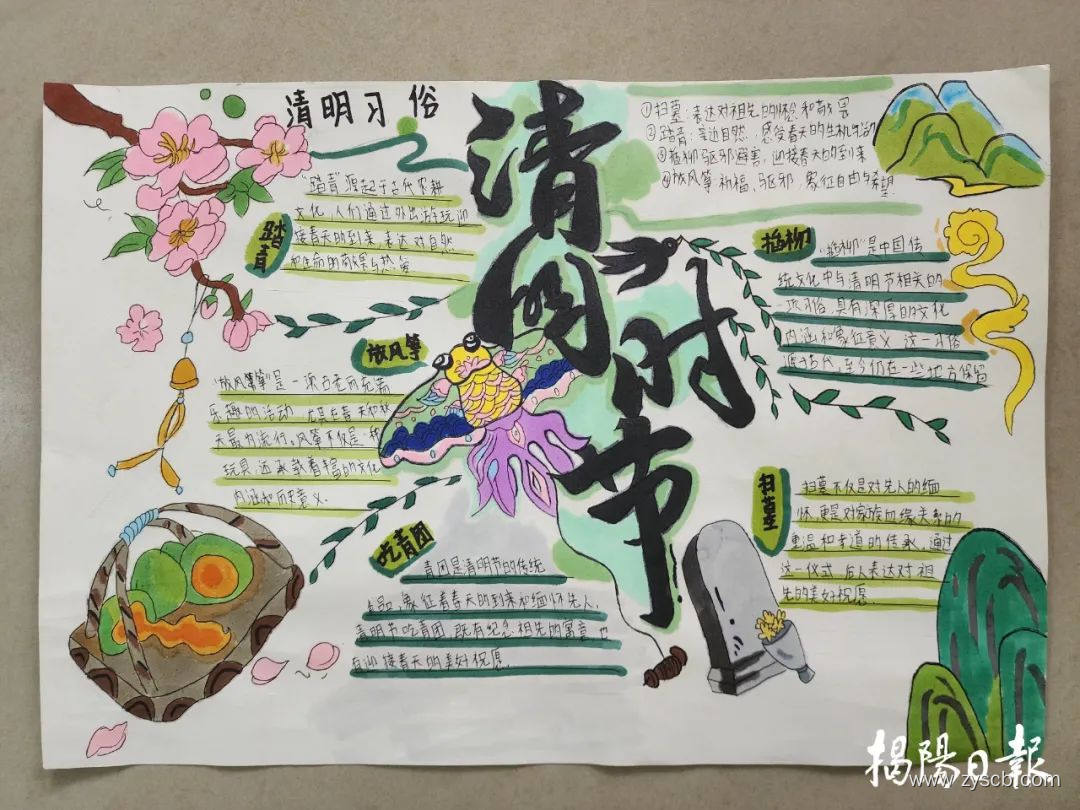 清明习俗
清明时节
①扫墓:表达对祖先的怀念和敬畏
②踏青:亲近自然,感受春天的生机
③插柳驱邪避害,迎接春天的到来
④放风筝祈福、驱邪,象征自由与希望
踏青
"踏青"源起于古代农耕
文化,人们通过外出游玩迎
接春天的到来,表达对自然
和生命的敬畏与热爱
插柳
"插柳"是中国传
统文化中与清明节相关的
一项习俗,具有深厚的文化
内涵和象征意义,这一习俗
源于古代,至今仍在一些地方保留
放风筝
"放风筝"是一项古老而充满
乐趣的活动,尤其在春天和秋
天最为流行。风筝不仅是一种
玩具,还承载着丰富的文化
内涵和历史意义.
吃青团
青团是清明节的传统
食品,象征着春天的到来和缅怀先人.
清明节吃青团,既有纪念祖先的寓意也
有迎接春天的美好祝愿.
扫墓
扫墓不仅是对先人的缅
怀,更是对家族血缘关系的
重温和孝道的传承,通过
这一仪式,后人表达对祖
先的美好祝愿.
揭陽日報
www.zyscb.com